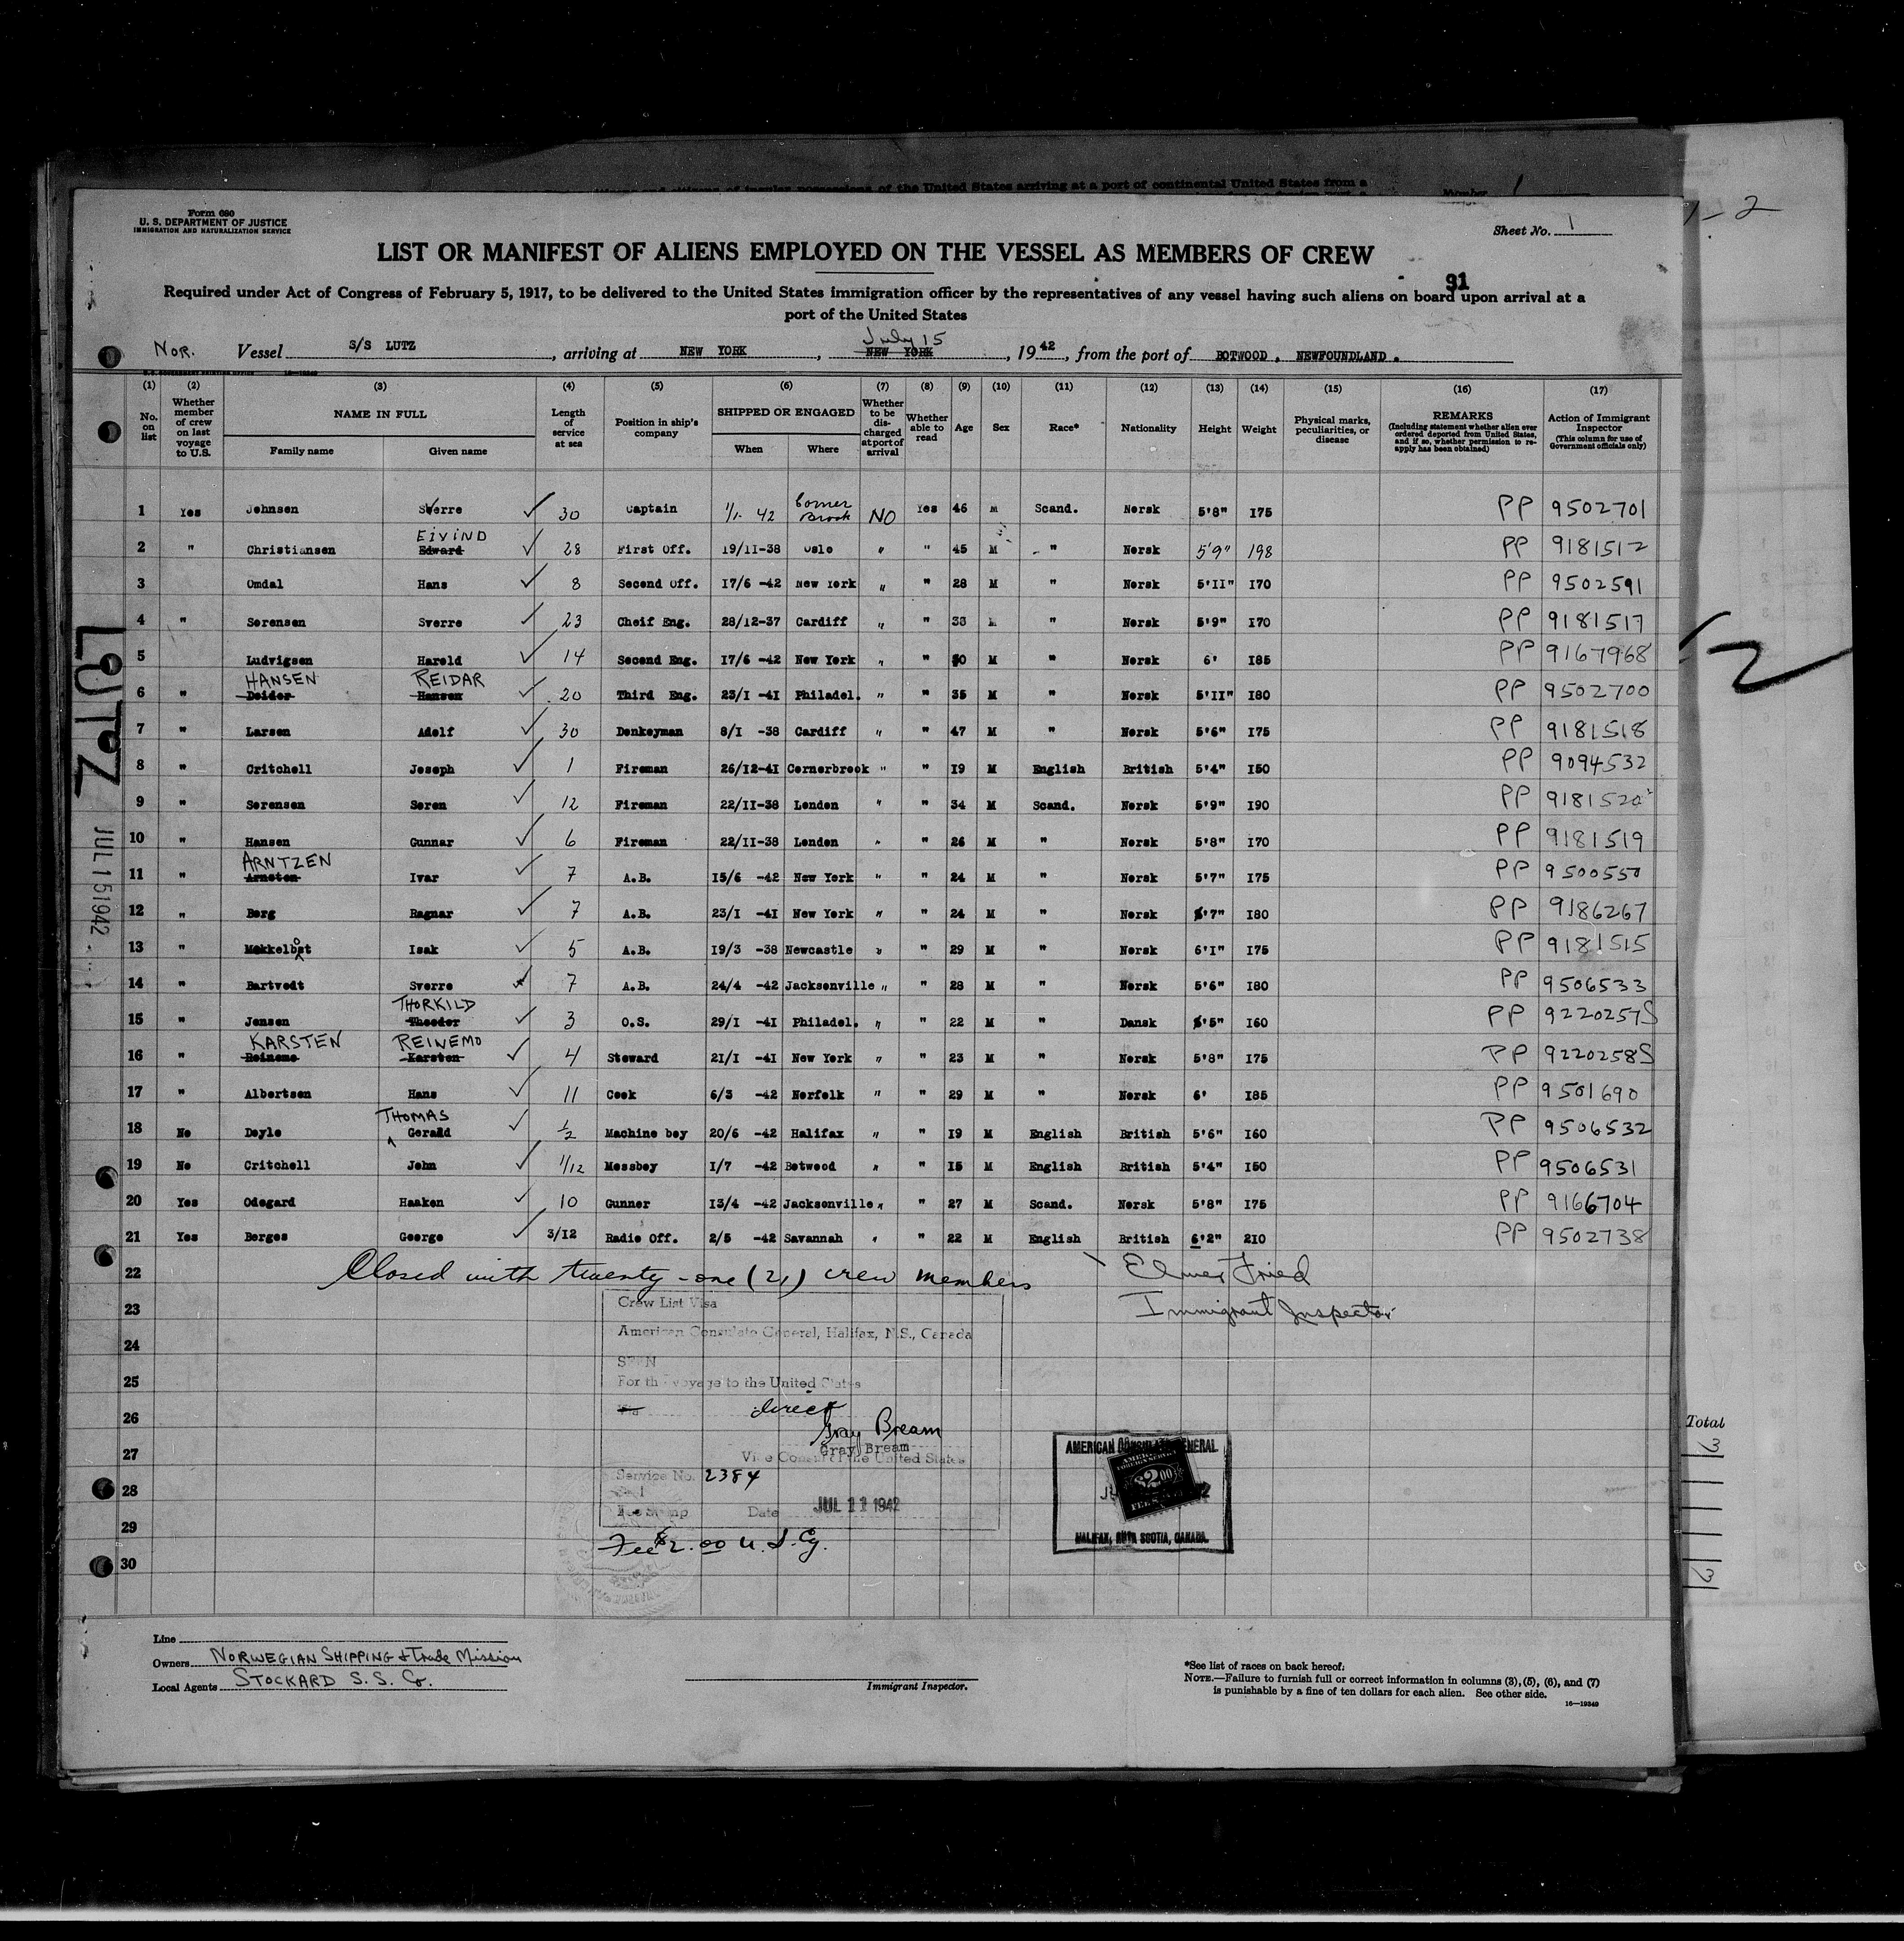 itions and citizens of insular possessions of the United States arriving at a port of continental United States from a
Number 1
1-2
Form 680
U. S. DEPARTMENT OF JUSTICE
IMMIGRATION AND NATURALIZATION SERVICE
Sheet No. 1
LIST OR MANIFEST OF ALIENS EMPLOYED ON THE VESSEL AS MEMBERS OF CREW
91
Required under Act of Congress of February 5, 1917, to be delivered to the United States immigration officer by the representatives of any vessel having such aliens on board upon arrival at a
port of the United States
Nor. Vessel S/S LUTZ, arriving at NEW YORK, NEW YORK July 15, 1942, from the port of BOTWOOD, NEWFOUNDLAND.
(1) (2) (3) (4) (5) (6) (7) (8) (9) (10) (11) (12) (13) (14) (15) (16) (17)
No. on list
Whether member of crew on last voyage to U.S.
NAME IN FULL
Family name Given name
Length of service at sea
Position in ship's company
SHIPPED OR ENGAGED
When Where
Whether to be discharged at port of arrival
Whether able to read
Age
Sex
Race*
Nationality
Height
Weight
Physical marks, peculiarities, or disease
REMARKS
(Including statement whether alien ever ordered deported from United States, and if so, whether permission to reapply has been obtained)
Action of Immigrant Inspector
(This column for use of Government officials only)
1 Yes Johnsen Sverre ✓ 30 Captain 1/1- 42 Corner Brook NO Yes 46 M Scand. Norsk 5'8" I75 PP 9502701
2 " Christiansen Edward EIVIND ✓ 28 First Off. I9/II-38 Oslo " " 45 M " Norsk 5'9" 198 PP 9181512
3 Omdal Hans ✓ 8 Second Off. I7/6 -42 New York " " 28 M " Norsk 5'II" I70 PP 9502591
4 " Sorensen Sverre ✓ 23 Cheif Eng. 28/I2-37 Cardiff " " 38 M " Norsk 5'9" I70 PP 9181517
5 Ludvigsen Harold ✓ 14 Second Eng. I7/6 -42 New York " " 50 M " Norsk 6' I85 PP 9167968
6 " Deider HANSEN Hansen REIDAR ✓ 20 Third Eng. 23/I -4I Philadel. " " 35 M " Norsk 5'II" I80 PP 9502700
7 " Larsen Adolf ✓ 30 Donkeyman 8/I -38 Cardiff " " 47 M " Norsk 5'6" I75 PP 9181518
8 " Critchell Joseph ✓ 1 Fireman 26/I2-4I Cornerbrook " " I9 M English British 5'4" I50 PP 9094532
9 " Sorensen Soren ✓ 12 Fireman 22/II-38 London " " 34 M Scand. Norsk 5'9" I90 PP 9181520
10 " Hansen Gunnar ✓ 6 Fireman 22/II-38 London " " 26 M " Norsk 5'8" I70 PP 9181519
11 " Arnsten ARNTZEN Ivar ✓ 7 A.B. I5/6 -42 New York " " 24 M " Norsk 5'7" I75 PP 9500550
12 " Berg Ragnar ✓ 7 A.B. 23/I -4I New York " " 24 M " Norsk 5'7" I80 PP 9186267
13 " Mekkelbost Isak ✓ 5 A.B. I9/3 -38 Newcastle " " 29 M " Norsk 6'I" I75 PP 9181515
14 " Bartvedt Sverre ✓ 7 A.B. 24/4 -42 Jacksonville " " 28 M " Norsk 5'6" I80 PP 9506533
15 " Jensen Theodor THORKILD ✓ 3 O.S. 29/I -4I Philadel. " " 22 M " Dansk 5'5" I60 PP 9220257S
16 " Reinemo KARSTEN Karsten REINEMO ✓ 4 Steward 2I/I -4I New York " " 23 M " Norsk 5'8" I75 PP 9220258S
17 " Albertsen Hans ✓ 11 Cook 6/3 -42 Norfolk " " 29 M " Norsk 6' I85 PP 9501690
18 No Doyle THOMAS Gerald ✓ 1/2 Machine boy 20/6 -42 Halifax " " I9 M English British 5'6" I60 PP 9506532
19 No Critchell John ✓ 1/12 Messboy I/7 -42 Botwood " " I5 M English British 5'4" I50 PP 9506531
20 Yes Odegard Haaken ✓ 10 Gunner I3/4 -42 Jacksonville " " 27 M Scand. Norsk 5'8" I75 PP 9166704
21 Yes Borges George ✓ 3/12 Radio Off. 2/5 -42 Savannah " " 22 M English British 6'2" 210 PP 9502738
22 Closed with twenty-one (21) crew members Elmer Fried
23 Immigrant Inspector
24
25
26
27
28
29
30
Crew List Visa
American Consulate General, Halifax, N.S., Canada
SEEN
For the voyage to the United States
Via direct
Gray Bream
Gray Bream
Vice Consul of the United States
Service No. 2384
Fee Stamp Date JUL 11 1942
Fee $2.00 U.S.Cy.
AMERICAN CONSULATE GENERAL
$2.00
HALIFAX, NOVA SCOTIA, CANADA.
LUTZ
JUL 15 1942
2
Total
Line
Owners NORWEGIAN SHIPPING & Trade Mission
Local Agents STOCKARD S. S. Co.
Immigrant Inspector.
*See list of races on back hereof:
NOTE.—Failure to furnish full or correct information in columns (3), (5), (6), and (7)
is punishable by a fine of ten dollars for each alien. See other side.
16—19349